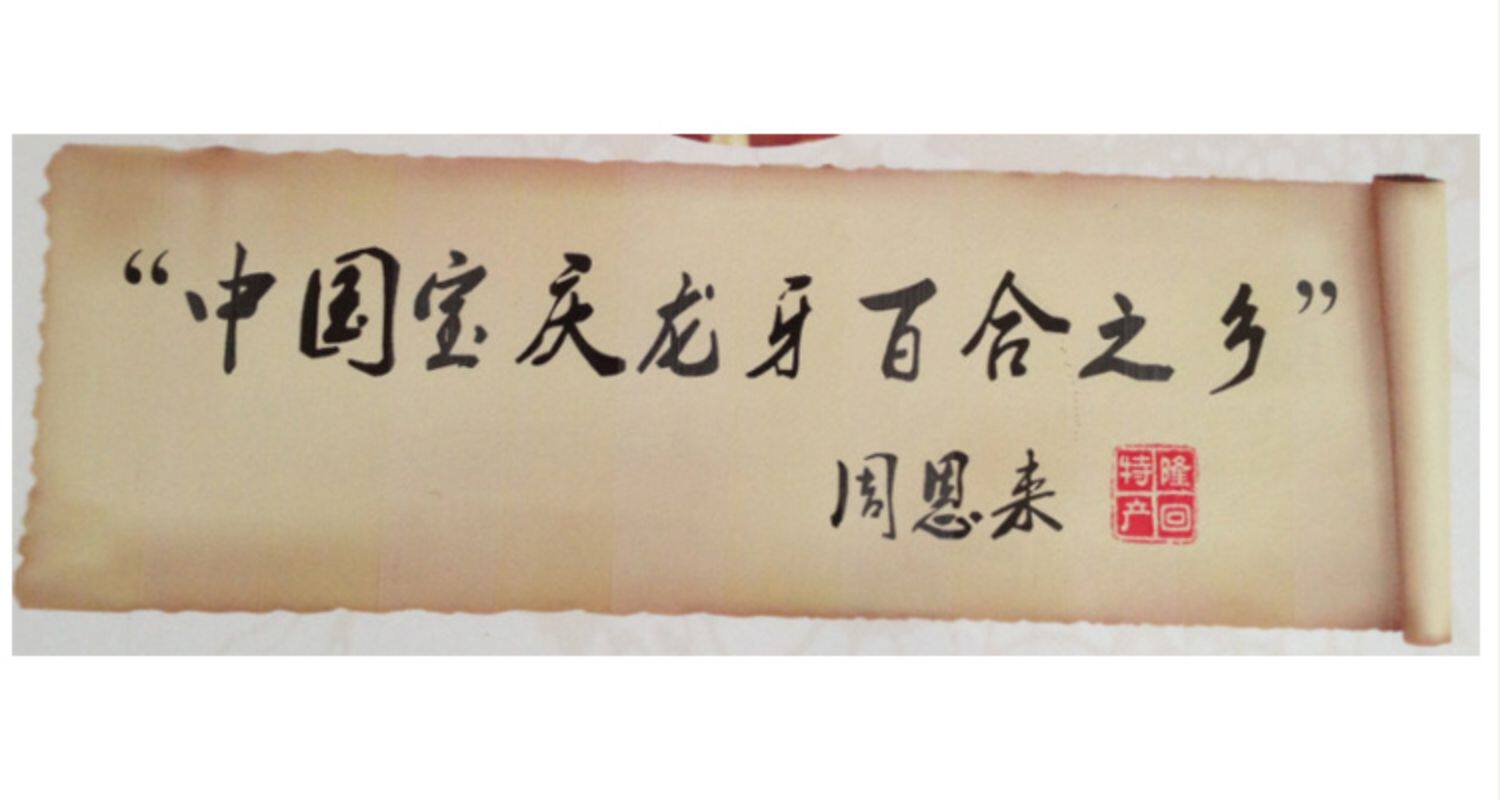 “中国宝庆龙牙百合之乡”
周恩来
隆回
特产